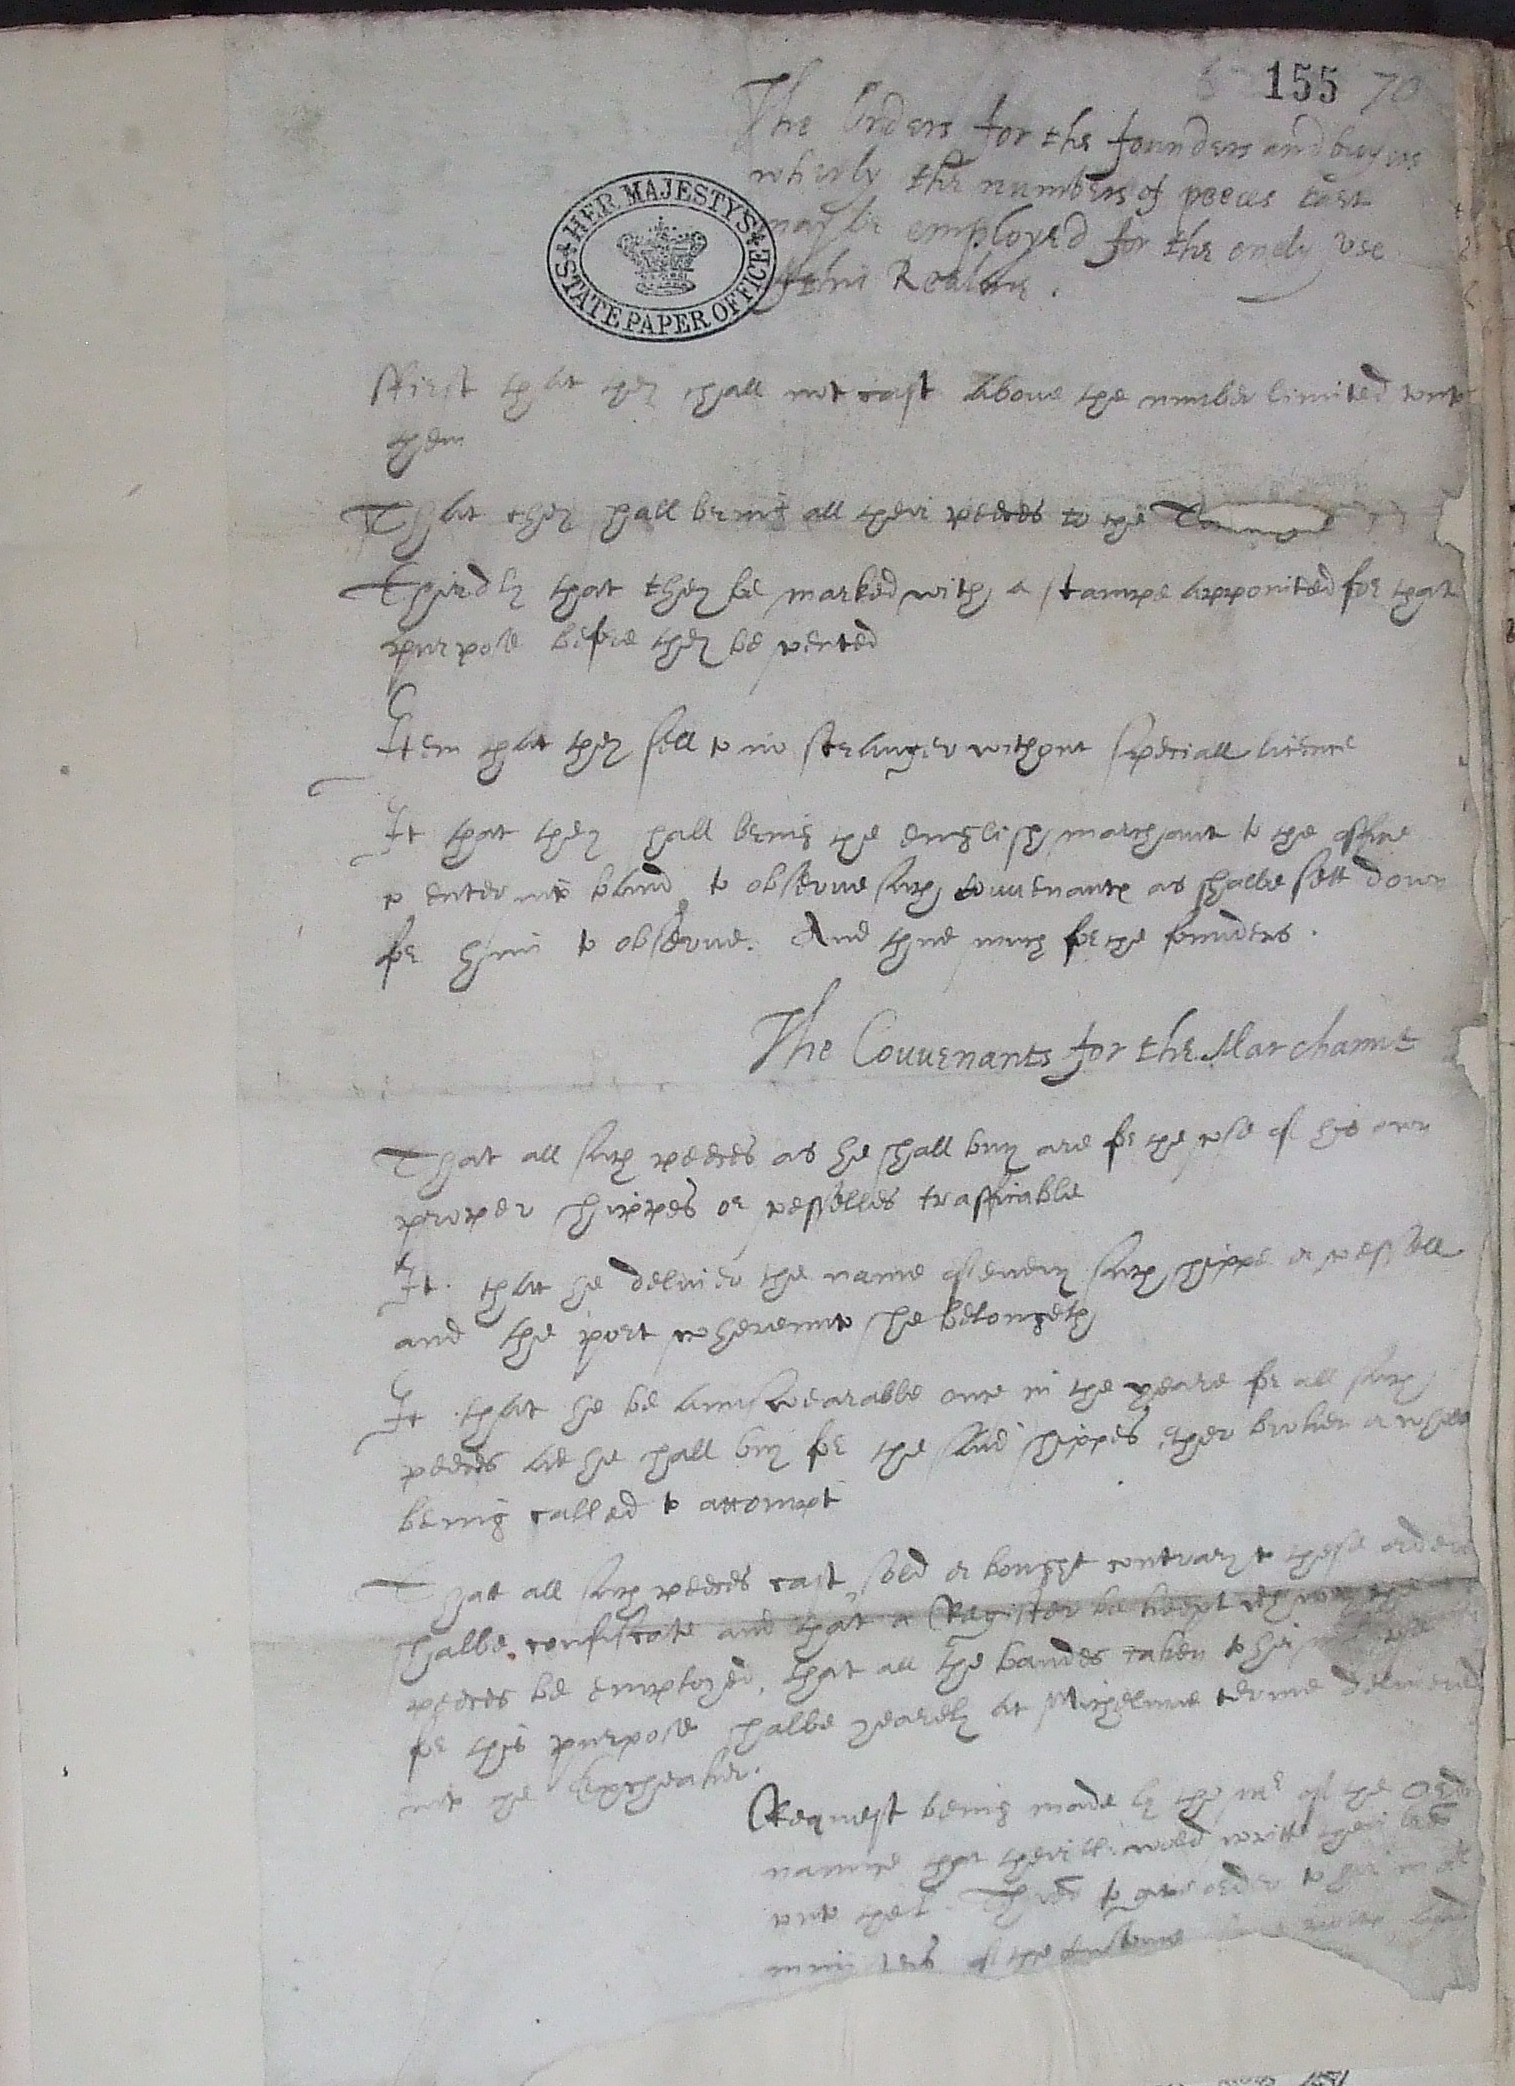 155 70
The Orders for the founders and buyers
wherby the numbers of peeces cast
may be employed for the onely vse
of this Realme.
HER MAJESTY'S STATE PAPER OFFICE
ffirst that they shall not cast aboue the number limited vnto
them
That they shall bring all their peeces to the
Thirdly that they be marked with a stampe appointed for that
purpose before they be vented
Item that they sell to no stranger without speciall licence
It that they shall bring the english marchaunt to the office
to enter into band to observe such couuenants as shalbe sett down
for him to observe. And thus much for the founders.
The Couuenants for the Marchaunt
That all such peeces as he shall buy are for the vse of his own
proper shippes or vesselles trafficable
It. that he deliuer the name of euery such shippe or vessell
and the port wherevnto she belongeth
It that he be aunswearable once in the yeare for all such
peeces as he shall buy for the said shippes, ether broken or whole
being called to accompt
That all such peeces cast, sold or bought contrary to these orders
shalbe confiscate and that a Register be keept
peeces be employed, that all the bandes taken to
for this purpose shalbe yearely at Michelmas terme deliuered
into the Exchequer.
Request being made by the mr of the Ord
naunce that their ll. would write their
vnto the L. Threr to giue order to
ministers of the Custome